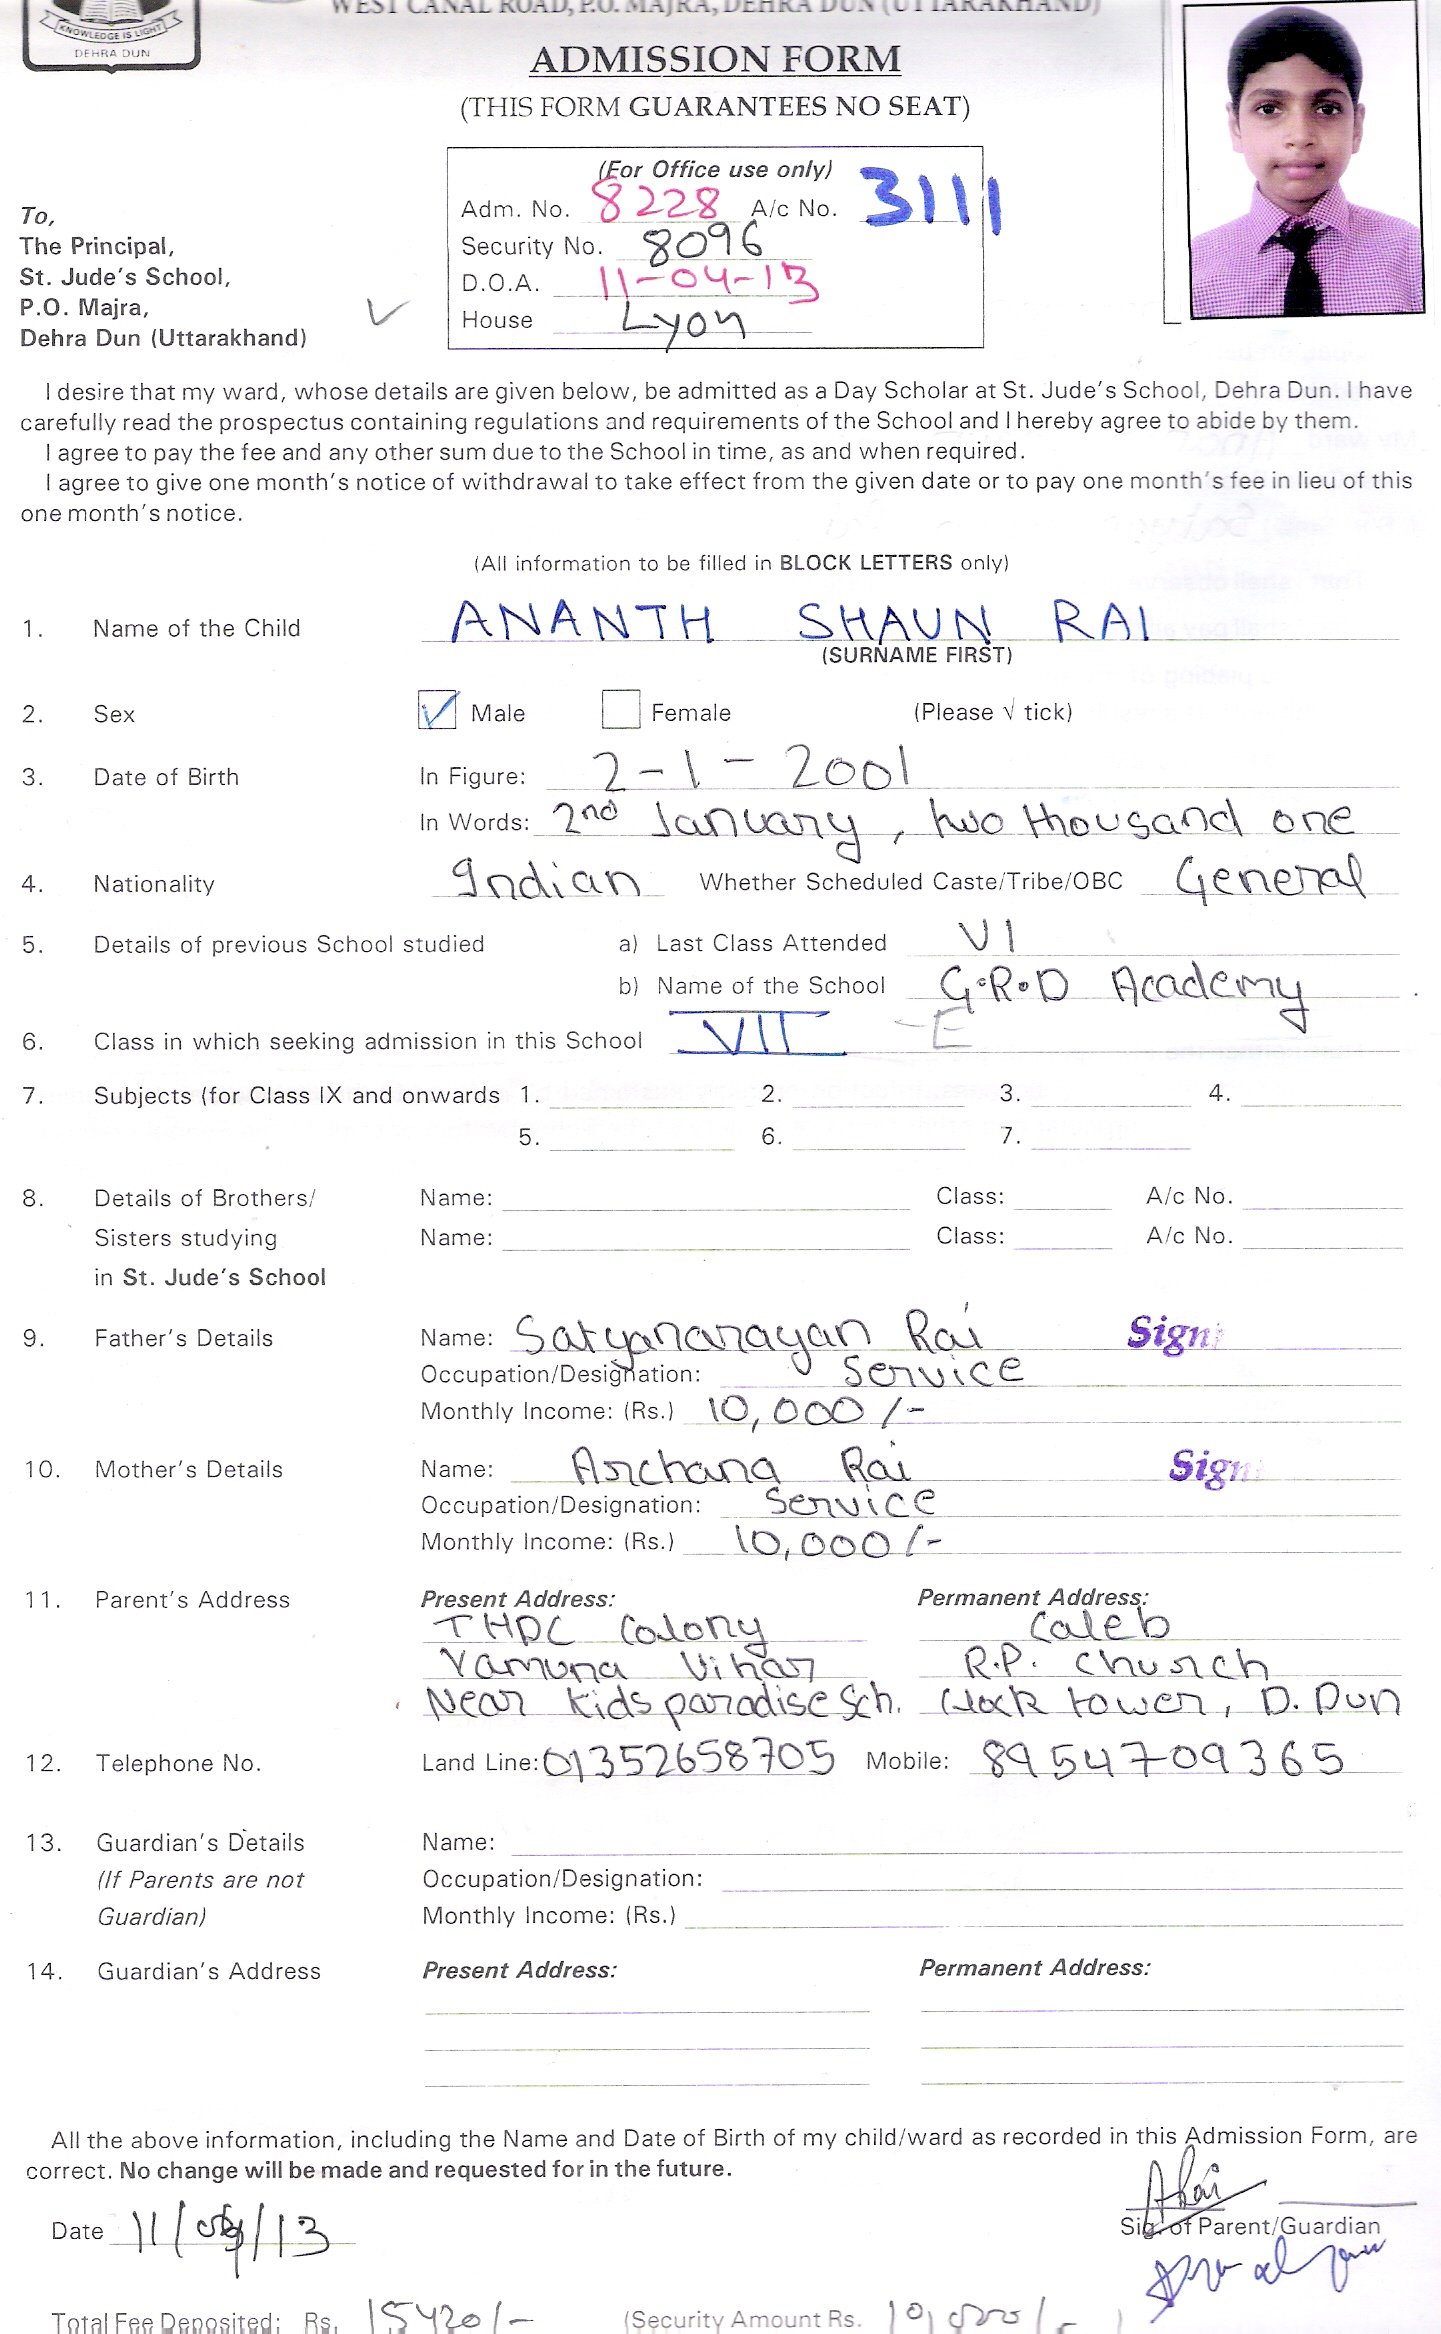 WEST CANAL ROAD, P.O. MAJRA, DEHRA DUN (UTTARAKHAND)
KNOWLEDGE IS LIGHT
DEHRA DUN
ADMISSION FORM
(THIS FORM GUARANTEES NO SEAT)
(For Office use only)
Adm. No. 8228 A/c No. 3111
Security No. 8096
D.O.A. 11-04-13
House Lyon
To,
The Principal,
St. Jude's School,
P.O. Majra,
Dehra Dun (Uttarakhand)
I desire that my ward, whose details are given below, be admitted as a Day Scholar at St. Jude's School, Dehra Dun. I have
carefully read the prospectus containing regulations and requirements of the School and I hereby agree to abide by them.
I agree to pay the fee and any other sum due to the School in time, as and when required.
I agree to give one month's notice of withdrawal to take effect from the given date or to pay one month's fee in lieu of this
one month's notice.
(All information to be filled in BLOCK LETTERS only)
1. Name of the Child ANANTH SHAUN RAI
(SURNAME FIRST)
2. Sex ✓ Male Female (Please √ tick)
3. Date of Birth In Figure: 2-1-2001
In Words: 2nd January, two thousand one
4. Nationality Indian Whether Scheduled Caste/Tribe/OBC General
5. Details of previous School studied a) Last Class Attended VI
b) Name of the School G.R.D Academy
6. Class in which seeking admission in this School VII -E
7. Subjects (for Class IX and onwards 1. 2. 3. 4.
5. 6. 7.
8. Details of Brothers/ Name: Class: A/c No.
Sisters studying Name: Class: A/c No.
in St. Jude's School
9. Father's Details Name: Satyanarayan Rai Sign
Occupation/Designation: Service
Monthly Income: (Rs.) 10,000/-
10. Mother's Details Name: Archana Rai Sign
Occupation/Designation: Service
Monthly Income: (Rs.) 10,000/-
11. Parent's Address Present Address: Permanent Address:
THDC Colony Caleb
Yamuna Vihar R.P. Church
Near Kids paradise Sch. Clock tower, D. Dun
12. Telephone No. Land Line: 01352658705 Mobile: 8954709365
13. Guardian's Details Name:
(If Parents are not Occupation/Designation:
Guardian) Monthly Income: (Rs.)
14. Guardian's Address Present Address: Permanent Address:
All the above information, including the Name and Date of Birth of my child/ward as recorded in this Admission Form, are
correct. No change will be made and requested for in the future.
ARai
Date 11/04/13 Sig. of Parent/Guardian
Total Fee Deposited: Rs. 15420/- (Security Amount Rs. 10,000/- )